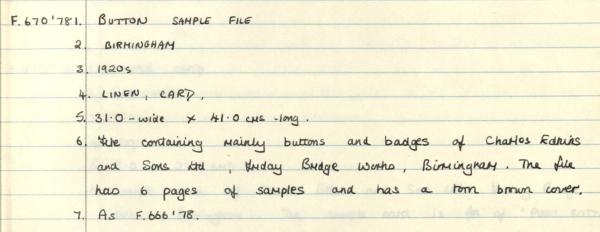 F.670'78 1. BUTTON SAMPLE FILE
2. BIRMINGHAM
3. 1920s
4. LINEN, CARD,
5. 31.0 - wide x 41.0 cms - long.
6. File containing mainly buttons and badges of Charles
and Sons Ltd, Bridge Works, Birmingham. The file
has 6 pages of samples and has a torn brown cover.
7. As F.666'78.